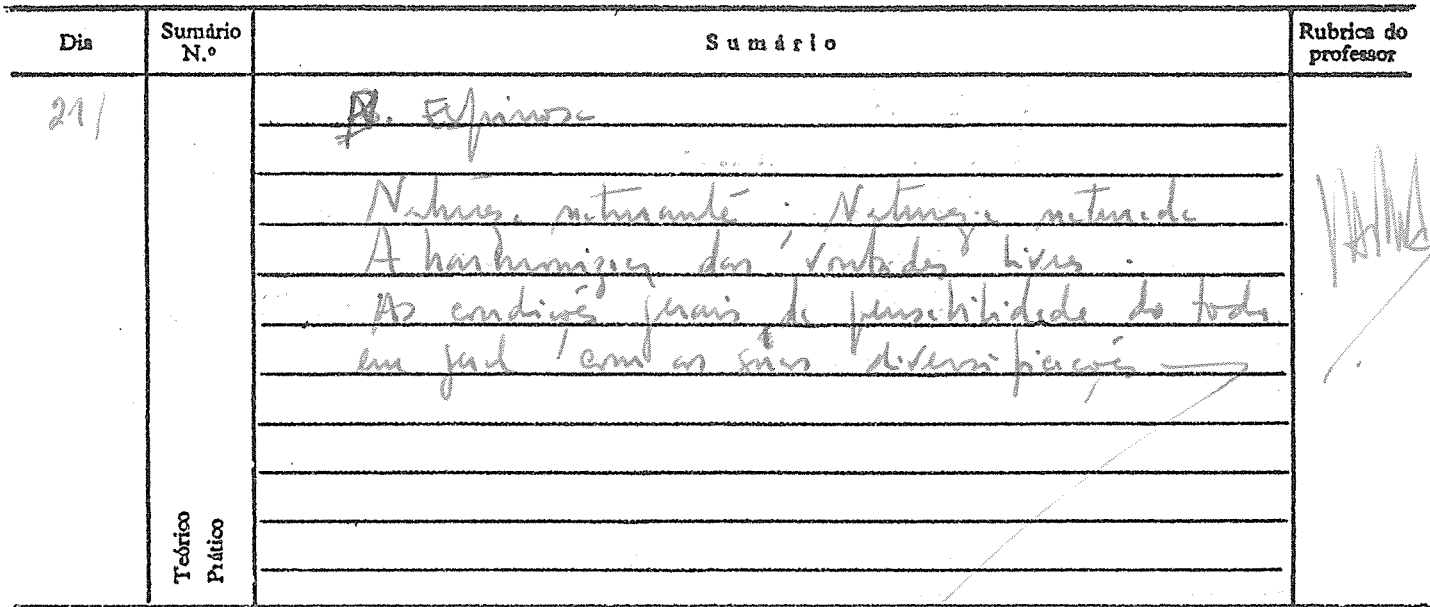 Dia
Sumário N.º
Sumário
Rubrica do professor
21/
B. Espinosa
Natureza naturante. Natureza naturada
A harmonização das vontades livres.
As condições gerais de pensabilidade do todo
em geral com as suas diversificações
Teórico
Prático